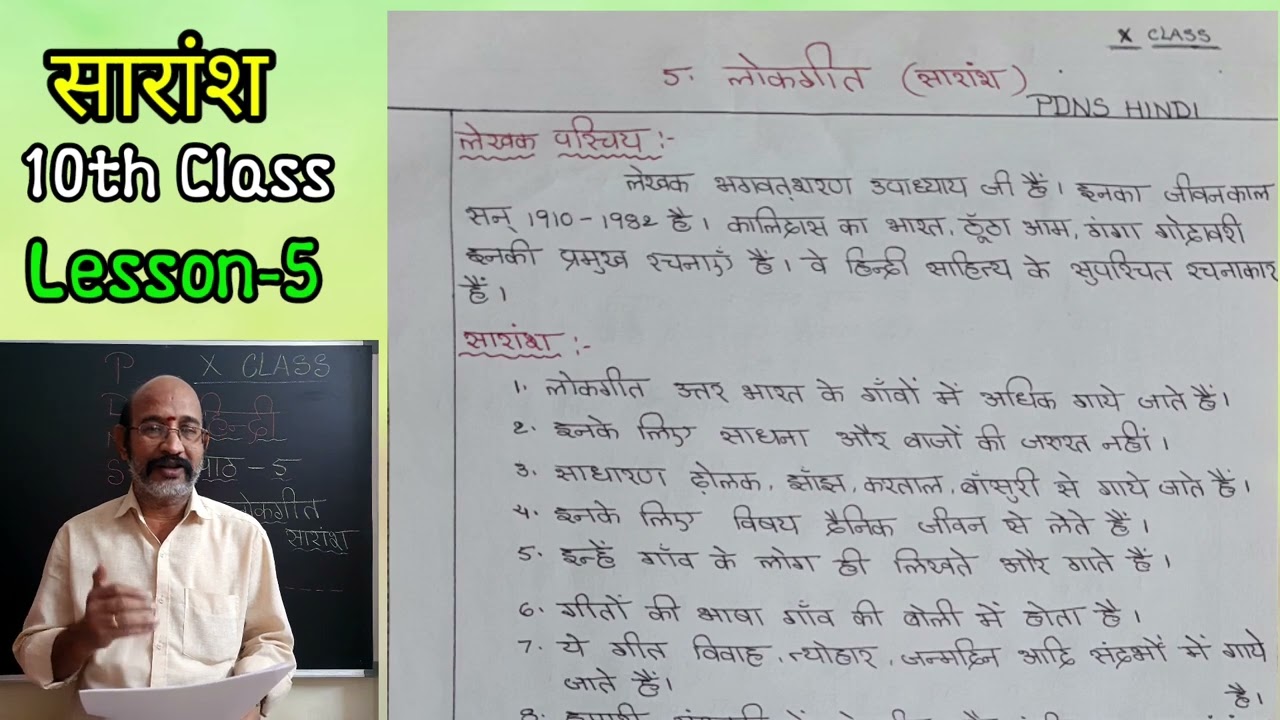 सारांश
10th Class
Lesson-5
X CLASS
हिन्दी
पाठ - 5
लोकगीत
सारांश
X CLASS
5. लोकगीत (सारांश)
PDNS HINDI
लेखक परिचय :-
लेखक भगवतशरण उपाध्याय जी हैं। इनका जीवनकाल
सन् 1910-1982 है। कालिदास का भारत, ठूँठा आम, गंगा गोदावरी
इनकी प्रमुख रचनाएँ हैं। वे हिन्दी साहित्य के सुपरिचत रचनाकार
हैं।
सारांश :-
1. लोकगीत उत्तर भारत के गाँवों में अधिक गाये जाते हैं।
2. इनके लिए साधना और वाजों की जरुरत नहीं।
3. साधारण ढ़ोलक, झाँझ, करताल, बाँसुरी से गाये जाते हैं।
4. इनके लिए विषय दैनिक जीवन से लेते हैं।
5. इन्हें गाँव के लोग ही लिखते और गाते हैं।
6. गीतों की भाषा गाँव की बोली में होता है।
7. ये गीत विवाह, त्योहार, जन्मदिन आदि संदर्भों में गाये
जाते हैं।
है।